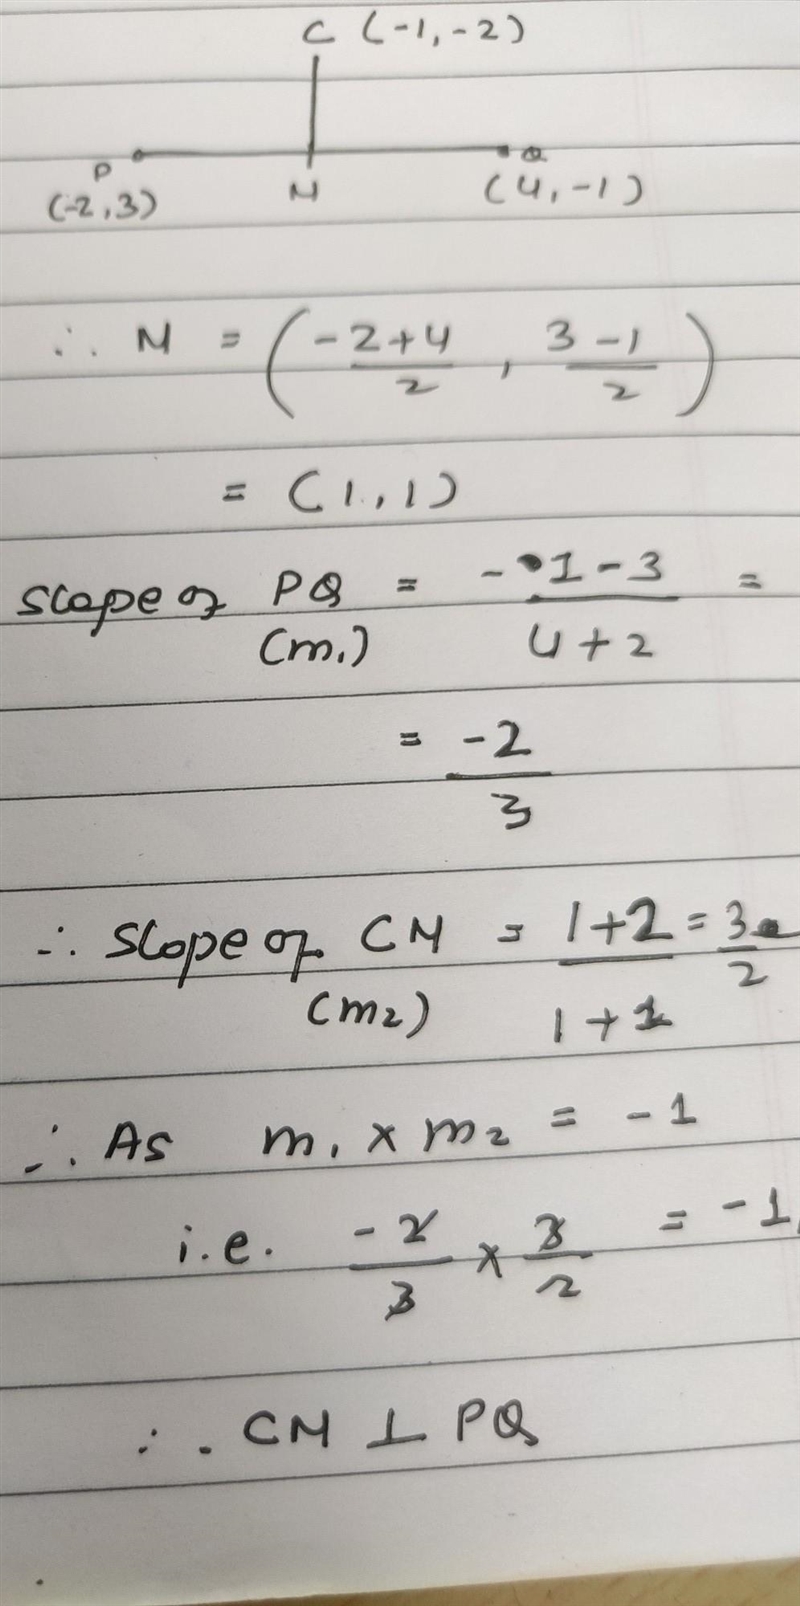 C (-1,-2)
P M Q
(-2,3) (4,-1)
∴ M = (-2+4/2 , 3-1/2)
= (1,1)
Slope of PQ = -1-3/4+2 =
(m₁)
= -2/3
∴ Slope of CM = 1+2/1+1 = 3/2
(m₂)
∴ As m₁ × m₂ = -1
i.e. -2/3 × 3/2 = -1
∴ CM ⊥ PQ